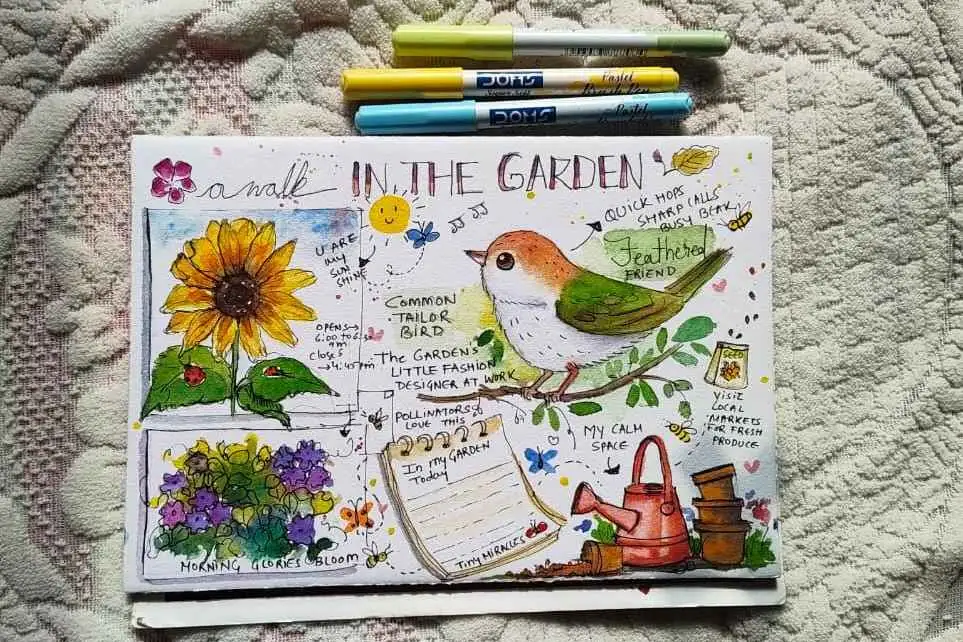 DOMS
Pastel
Brush Pen
DOMS
Pastel
a walk IN THE GARDEN
U ARE
MY
SUN
SHINE
QUICK HOPS
SHARP CALLS
BUSY BEAK
Feathered
FRIEND
COMMON
TAILOR
BIRD
OPENS→
6:00 to 6:30
am
Closes
→4:45 pm
The GARDENS
LITTLE FASHION
DESIGNER AT WORK
SEED
VISIT
LOCAL
MARKETS
FOR FRESH
PRODUCE
POLLINATORS
LOVE THIS
MY CALM
SPACE
In my GARDEN
Today
TINY MIRACLES
MORNING GLORIES BLOOM